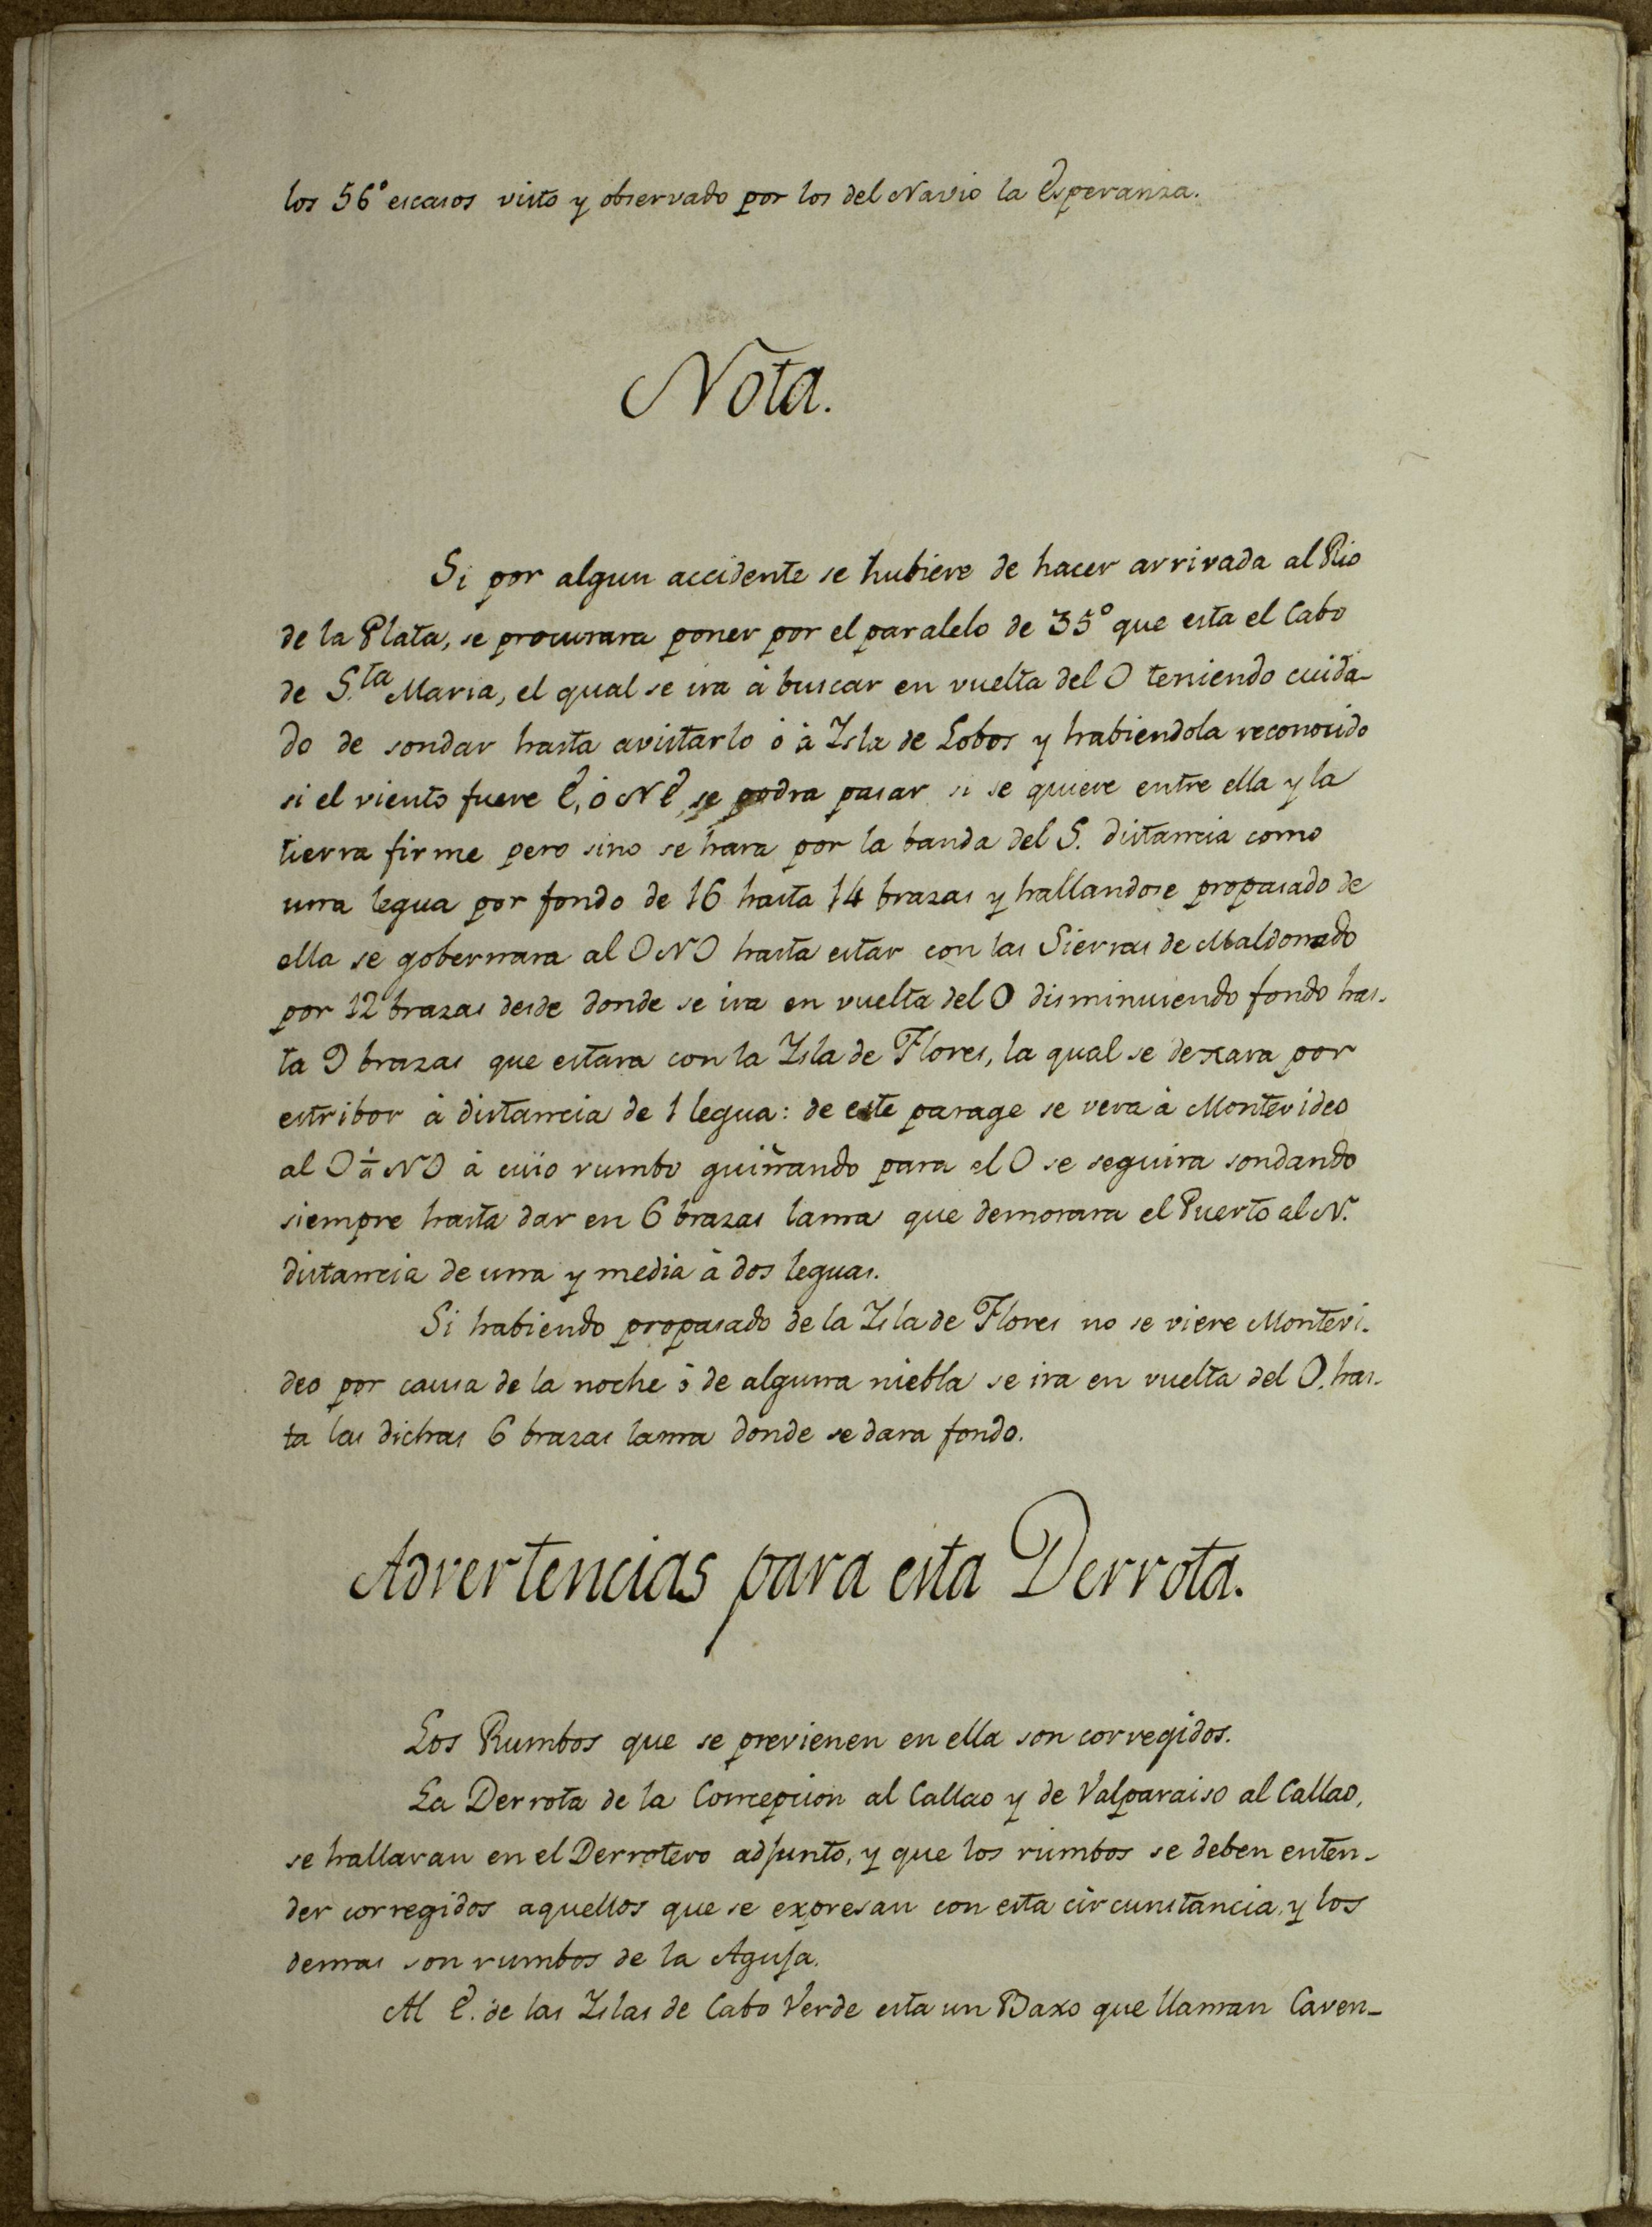 los 56° escasos visto y observado por los del Navio la Esperanza.
Nota.
Si por algun accidente se hubiere de hacer arrivada al Rio
de la Plata, se procurara poner por el paralelo de 35° que esta el Cabo
de S.ta Maria, el qual se ira à buscar en vuelta del O teniendo cuida-
do de sondar hasta avistarlo ò à Isla de Lobos y habiendola reconocido
si el viento fuere E, ò NE, se podra pasar si se quiere entre ella y la
tierra firme pero sino se hara por la banda del S. distancia como
una legua por fondo de 16 hasta 14 brazas y hallandose propasado de
ella se gobernara al ONO hasta estar con las Sierras de Maldonado
por 12 brazas desde donde se ira en vuelta del O disminuiendo fondo has-
ta 9 brazas que estara con la Isla de Flores, la qual se dexara por
estribor à distancia de 1 legua: de este parage se vera à Montevideo
al O à NO à cuïo rumbo guiñando para el O se seguira sondando
siempre hasta dar en 6 brazas lama que demorara el Puerto al N.
distancia de una y media à dos leguas.
Si habiendo propasado de la Isla de Flores no se viere Montevi-
deo por causa de la noche ò de alguna niebla se ira en vuelta del O. has-
ta las dichas 6 brazas lama donde se dara fondo.
Advertencias para esta Derrota.
Los Rumbos que se previenen en ella son corregidos.
La Derrota de la Concepcion al Callao y de Valparaiso al Callao,
se hallaran en el Derrotero adjunto, y que los rumbos se deben enten-
der corregidos aquellos que se expresan con esta circunstancia, y los
demas son rumbos de la Aguja.
Al E. de las Islas de Cabo Verde esta un Baxo que llaman Caven-